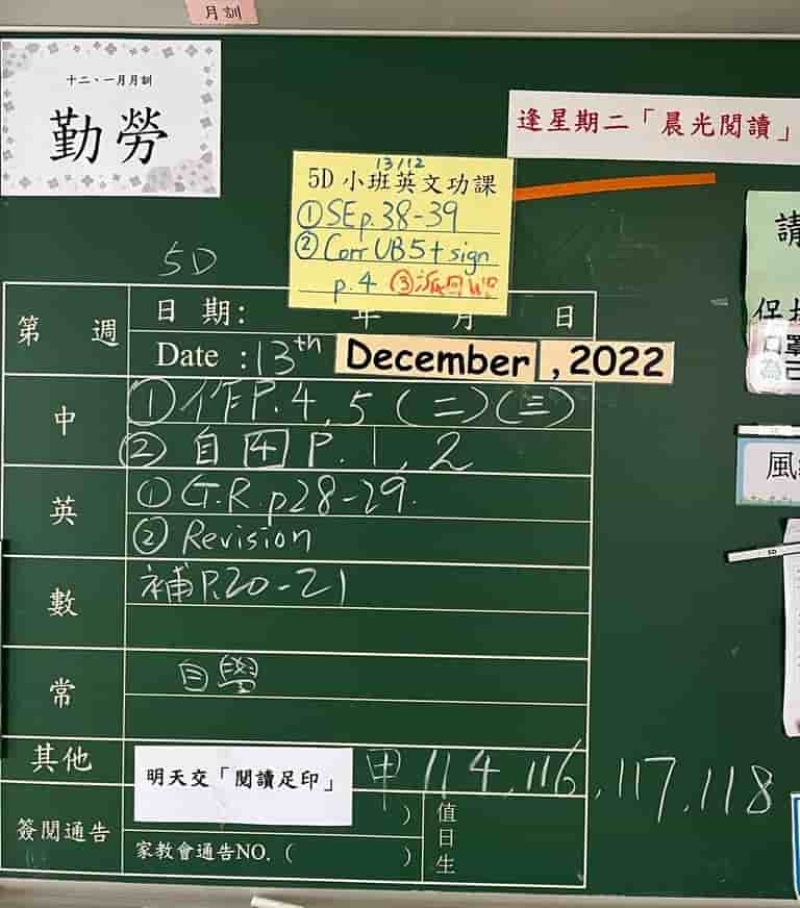 月訓
十二、一月月訓
勤勞
逢星期二「晨光閱讀」
13/12
5D 小班英文功課
① SE p.38-39
② Corr UB5 + sign
p.4 ③派回
5D
第 週
日期: 年 月 日
Date : 13th December , 2022
中
① 作P.4, 5 (二)(三)
② 自 四 P. 1, 2
英
① G.R. p28-29.
② Revision
數
補P.20-21
常
自學
其他
明天交「閱讀足印」
甲 114, 116, 117, 118
簽閱通告
)
家教會通告NO. ( )
值日生
請
口罩
為己
風
5D